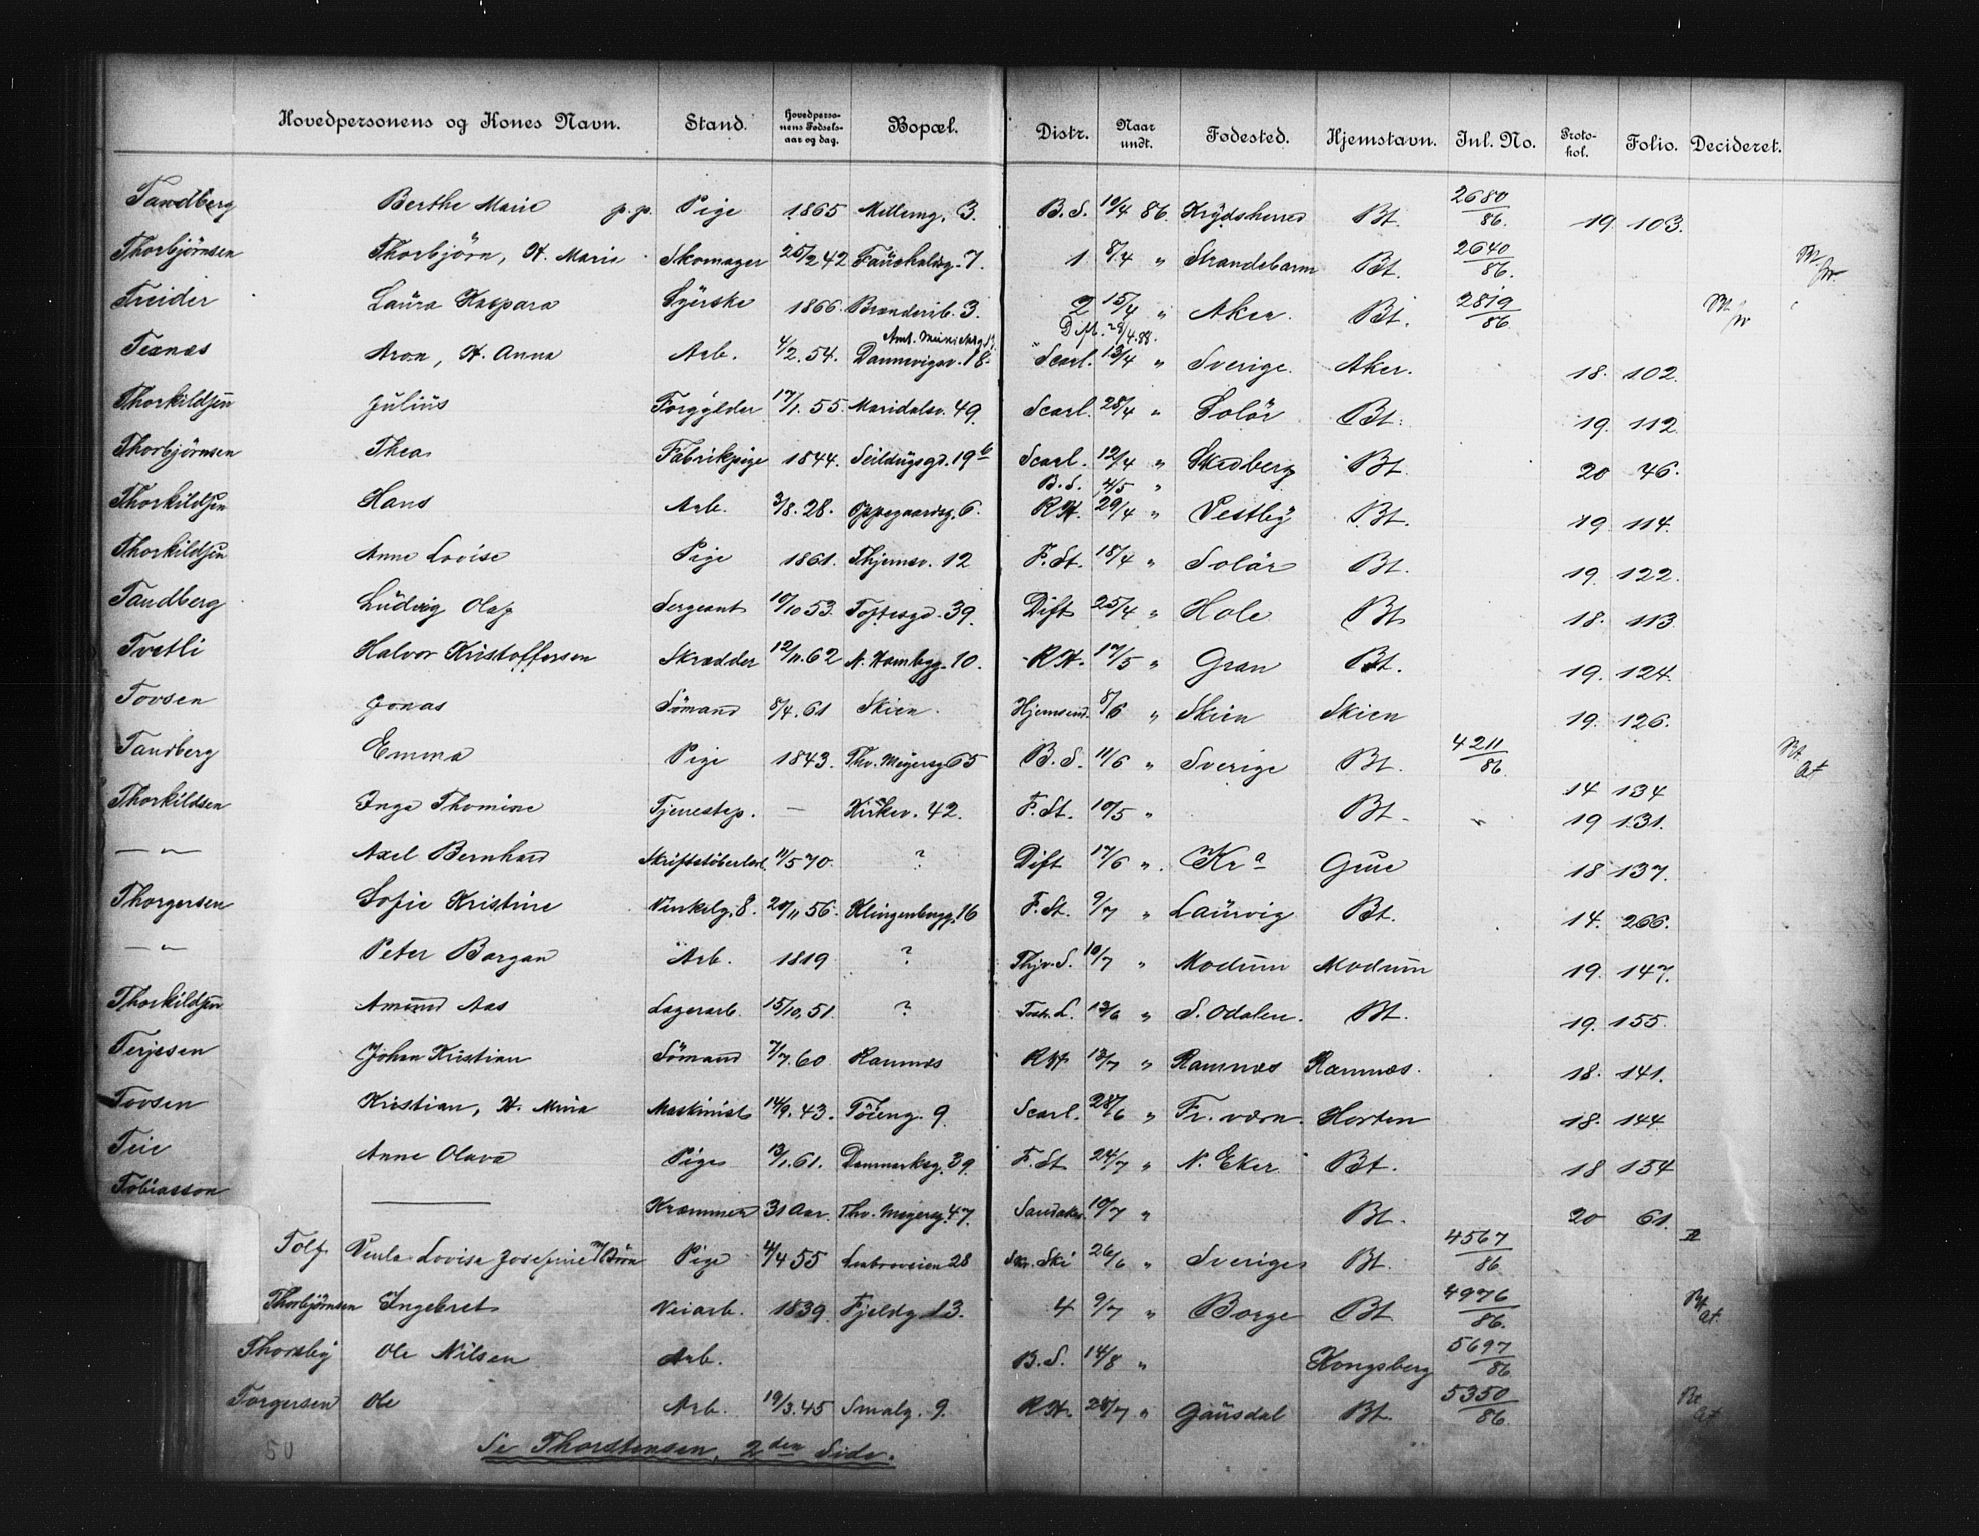 Hovedpersonens og Kones Navn. Stand. Hovedpersonens Fødselsaar og dag. Bopæl. Distr. Naar undt. Fødested. Hjemstavn. Inl. No. Protokol. Folio. Decideret.
Tandberg Berthe Marie p.p. Pige 1865 3. B.S. 10/4 86. Krydsherred Bt. 2680/86. 19. 103.
Thorbjørnsen Thorbjørn, H. Marie Skomager 25/2 42 7. 1 8/4 " Strandebarm Bt. 2640/86.
Treider Laura Kaspara Syerske 1866. 3. 2 15/4 " Aker Bt. 2819/86.
Texnæs Aron, H. Anna Arb. 4/2. 54. Dannevigsv. 18. Scarl. 13/4 " Sverige. Aker. 18. 102.
Thorkildsen Julius Forgylder 17/1. 55. Maridalsv. 49. Scarl. 28/4 " Solør Bt. 19. 112.
Thorbjørnsen Thea Fabrikpige 1844. Seildugsgd. 19b Scarl. 12/4 " Skedberg Bt. 20 46.
B.S. 4/5 "
Thorkildsen Hans Arb. 3/8. 28. Oppegaardsg. 6. RH. 29/4 " Vestby Bt. 19. 114.
Thorkildsen Anne Lovise Pige 1861. Thjemsv. 12 F. St. 18/4 " Solør Bt. 19. 122.
Tandberg Ludvig Olaf Sergeant 10/10 53. Toftesgd. 39. Dift 25/4 " Hole Bt 18. 113
Tvetli Halvor Kristoffersen Skrædder 12/11. 62 10. RH. 17/5 " Gran Bt. 19. 124.
Tovsen Jonas Sømand 8/4. 61 Skien. Hjemsend. 8/6 " Skien Skien 19. 126.
Tandberg Emma Pige 1843. Thv. Meyersg 65 B.S. 11/6 " Sverige Bt. 4211/86.
Thorkildsen Inga Thomine Tjenestep. — Kirkev. 42. F. St. 10/5 " Bt. 14 134
19 131.
— " — Axel Bernhard 11/5 70. ? Dift 17/6 " Kra Grue 18 137.
Thorgersen Sofie Kristine Vinkelg. 8. 20/11 56. Klingenbergg. 16 F. St. 9/7 " Laurvig Bt. 14. 266.
— " — Peter Borgan Arb. 1819 ? Thjv. S. 10/7 " Modum Modum 19. 147.
Thorkildsen Amund Aas Lagerarb. 15/10. 51. ? 13/6 " S. Odalen. Bt. 19. 155.
Terjesen Johan Kristian Sømand 7/7. 60 Ramnæs RH 13/7 " Ramnæs Ramnæs. 18. 141.
Tovsen Kristian, H. Mina Maskinist 14/9. 43. Tøieng. 9. Scarl. 28/6 " Fr. værn. Horten 18. 144
Teie Anne Olava Pige 13/1. 61. Danmarksg. 39. F. St 24/7 " N. Eker Bt. 18 154
Tobiasson ——— Kræmmer 31 Aar. Thv. Meyersg. 47. Sandaker. 10/7 " Bt. 20 61.
Tolf Lovise Josefine Pige 4/4 55 Ljabroveien 28 26/6 " Sverige Bt. 4567/86
Thorbjørnsen Ingebret Veiarb. 1839. Fjeldg. 13. 4 9/7 " Borge Bt 4976/86.
Thorsby Ole Nilsen Arb. B.S. 14/8 " Kongsberg 5697/86
Torgersen Ole Arb. 19/3. 45 Smalg. 9. RH. 28/7 " Gausdal Bt. 5350/86.
50 Se Thorstensen, 2den Side.